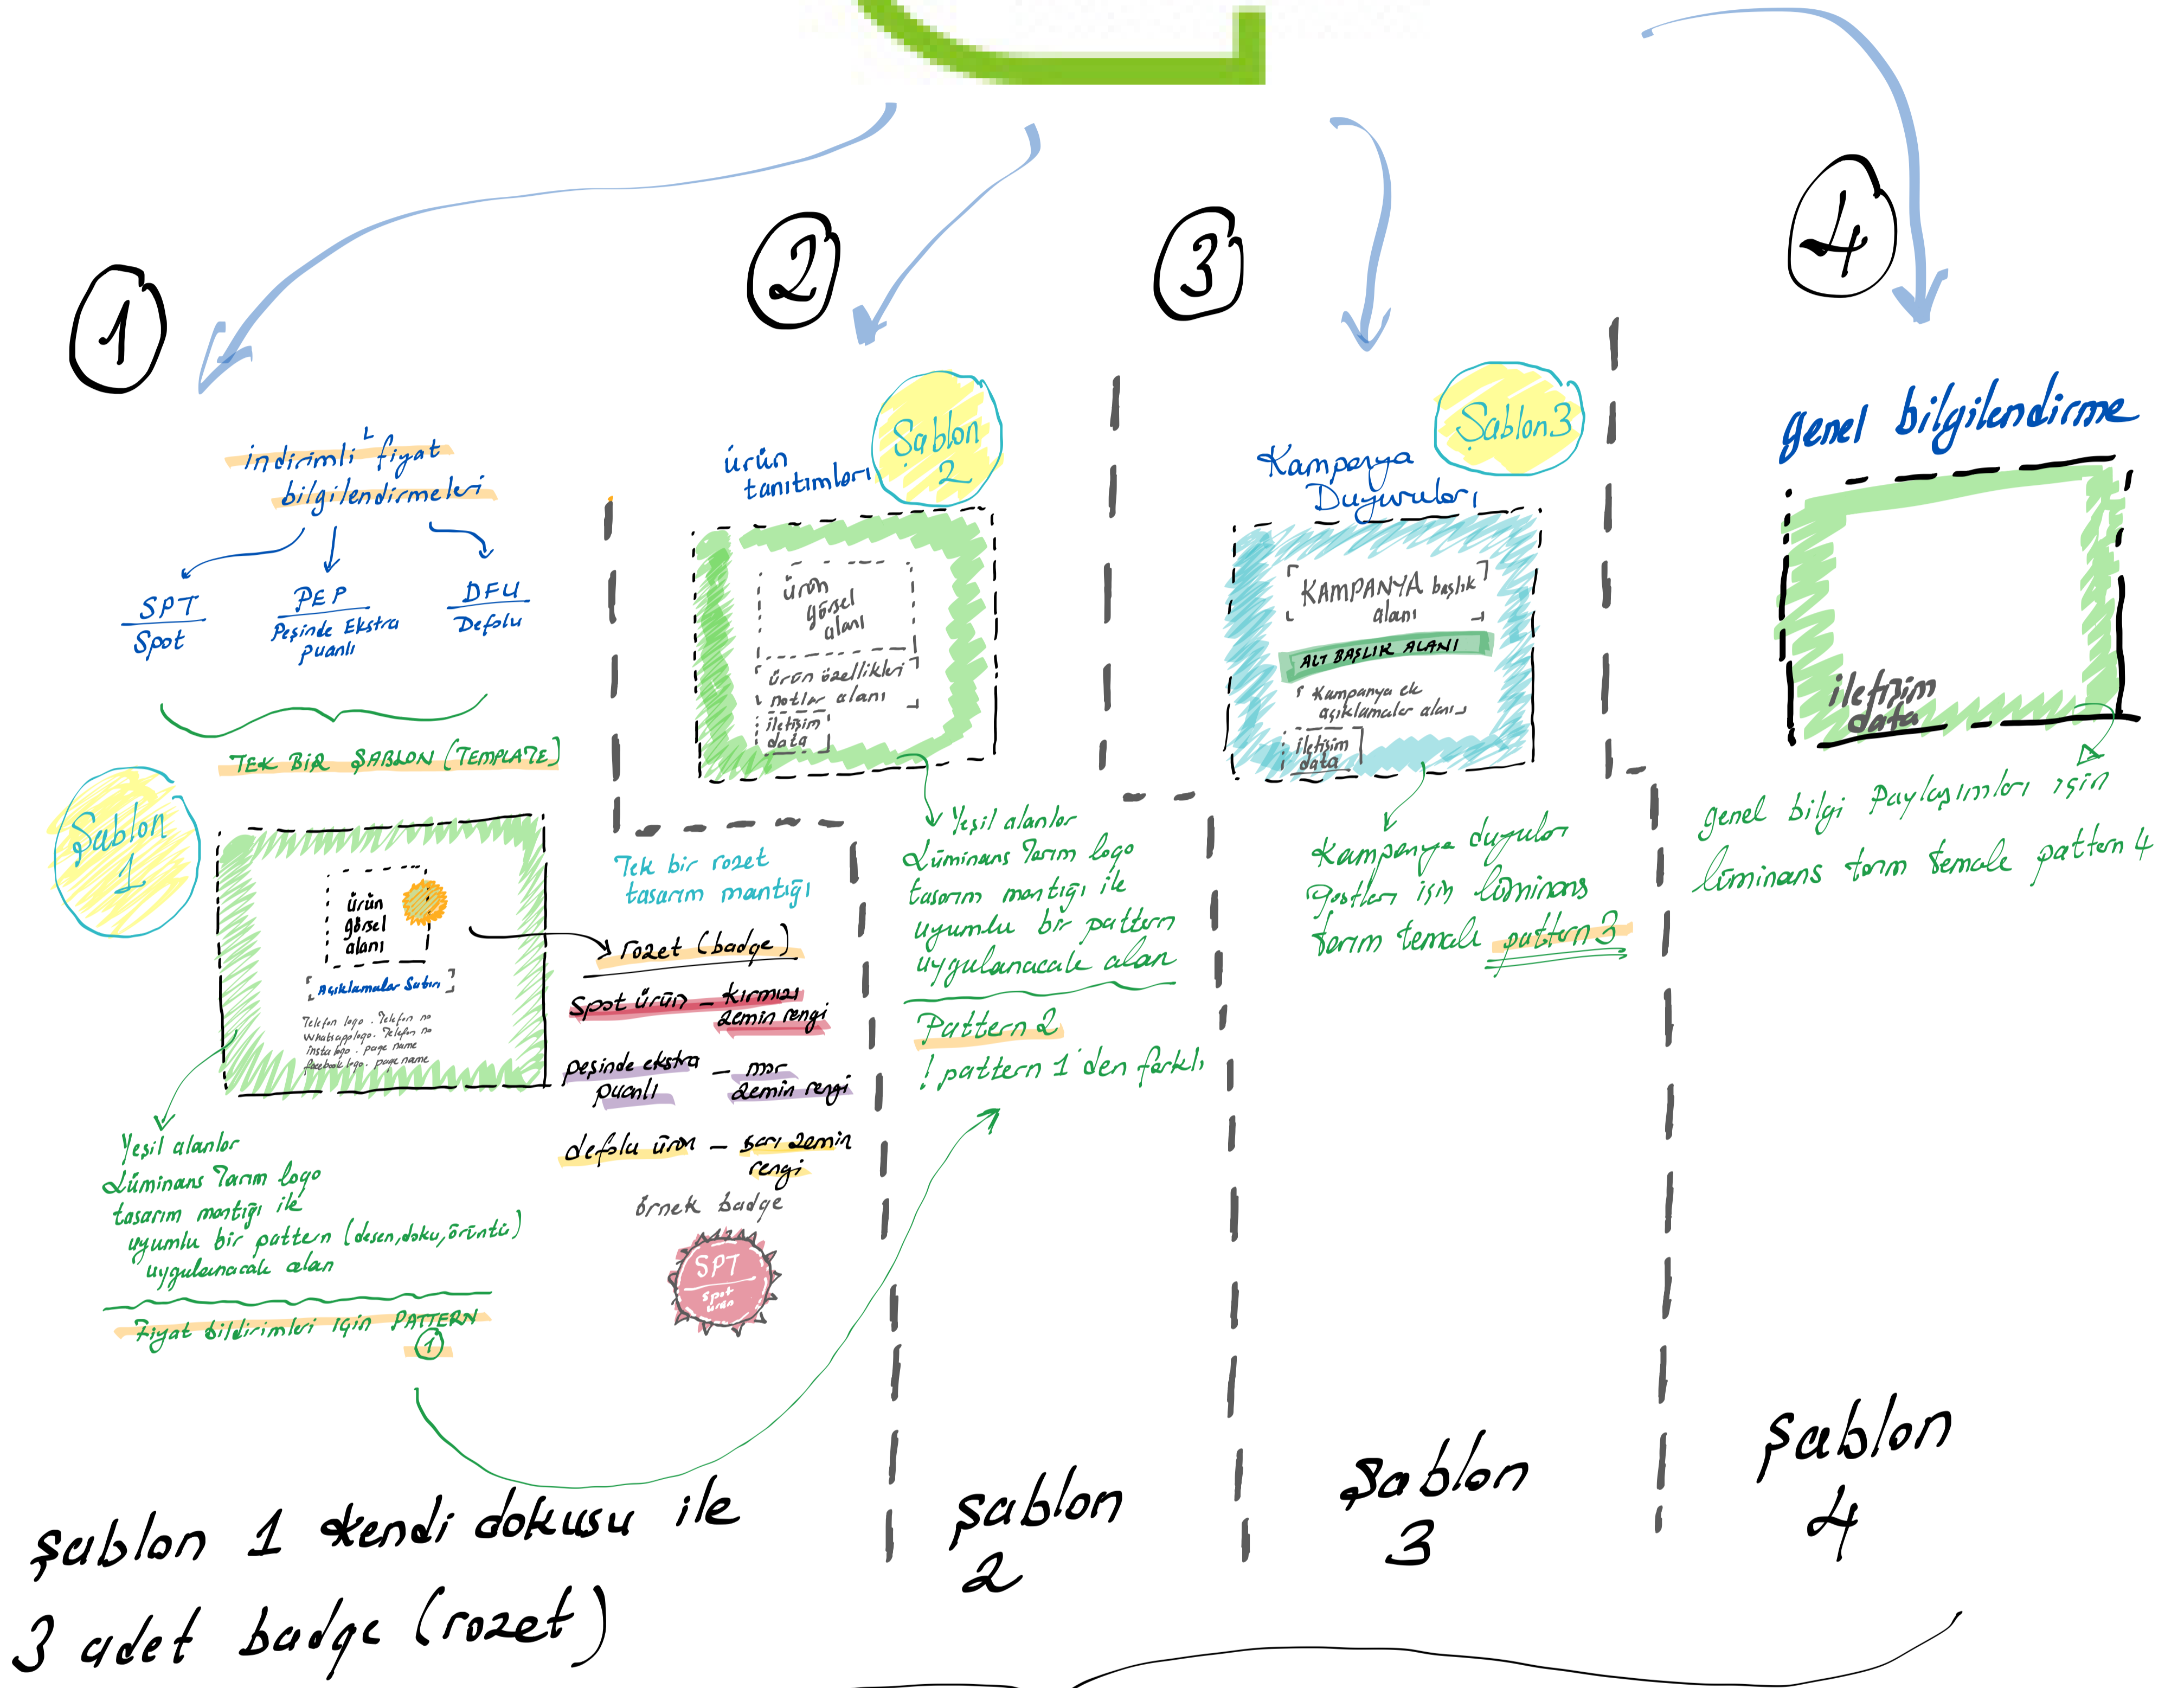 1
indirimli fiyat
bilgilendirmeleri
SPT
Spot
PEP
Peşinde Ekstra
puanlı
DFU
Defolu
TEK BİR ŞABLON (TEMPLATE)
Şablon
1
ürün
görsel
alanı
Açıklamalar Satırı
Telefon logo. Telefon no
Whatsapp logo. Telefon no
insta logo. page name
facebook logo. page name
Yeşil alanlar
Lüminans Tarım logo
tasarım mantığı ile
uyumlu bir pattern (desen, doku, örüntü)
uygulanacak alan
Fiyat bildirimleri için PATTERN
1
Tek bir rozet
tasarım mantığı
rozet (badge)
Spot ürün – kırmızı
zemin rengi
peşinde ekstra
puanlı
– mor
zemin rengi
defolu ürün – sarı zemin
rengi
örnek badge
SPT
Spot
ürün
şablon 1 kendi dokusu ile
3 adet badge (rozet)
2
ürün
tanıtımları
Şablon
2
ürün
görsel
alanı
ürün özellikleri
notlar alanı
iletişim
data
Yeşil alanlar
Lüminans Tarım logo
tasarım mantığı ile
uyumlu bir pattern
uygulanacak alan
Pattern 2
! pattern 1'den farklı
şablon
2
3
Kampanya
Duyuruları
Şablon 3
KAMPANYA başlık
alanı
ALT BAŞLIK ALANI
Kampanya ek
açıklamalar alanı
iletişim
data
Kampanya duyuları
Postları için lüminans
tarım temalı pattern 3
şablon
3
4
genel bilgilendirme
iletişim
data
genel bilgi Paylaşımları için
lüminans tarım temalı pattern 4
şablon
4